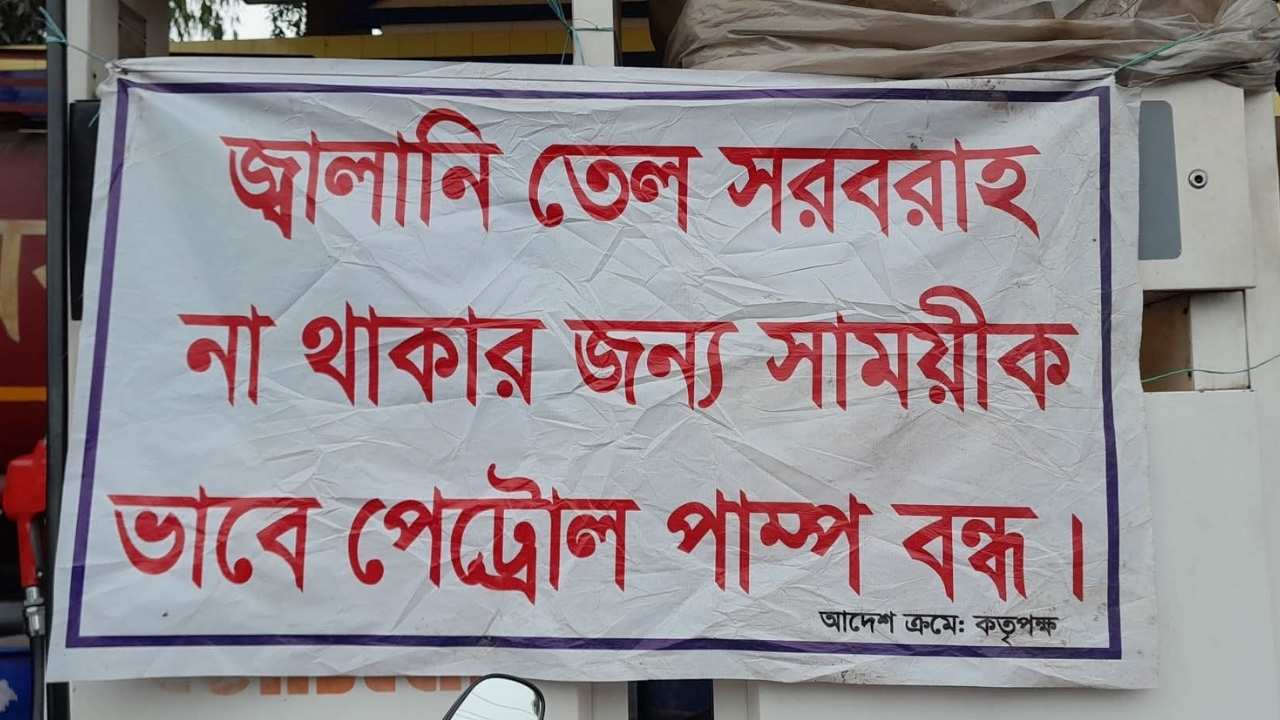 জ্বালানি তেল সরবরাহ
না থাকার জন্য সাময়ীক
ভাবে পেট্রোল পাম্প বন্ধ।
আদেশ ক্রমে: কতৃপক্ষ